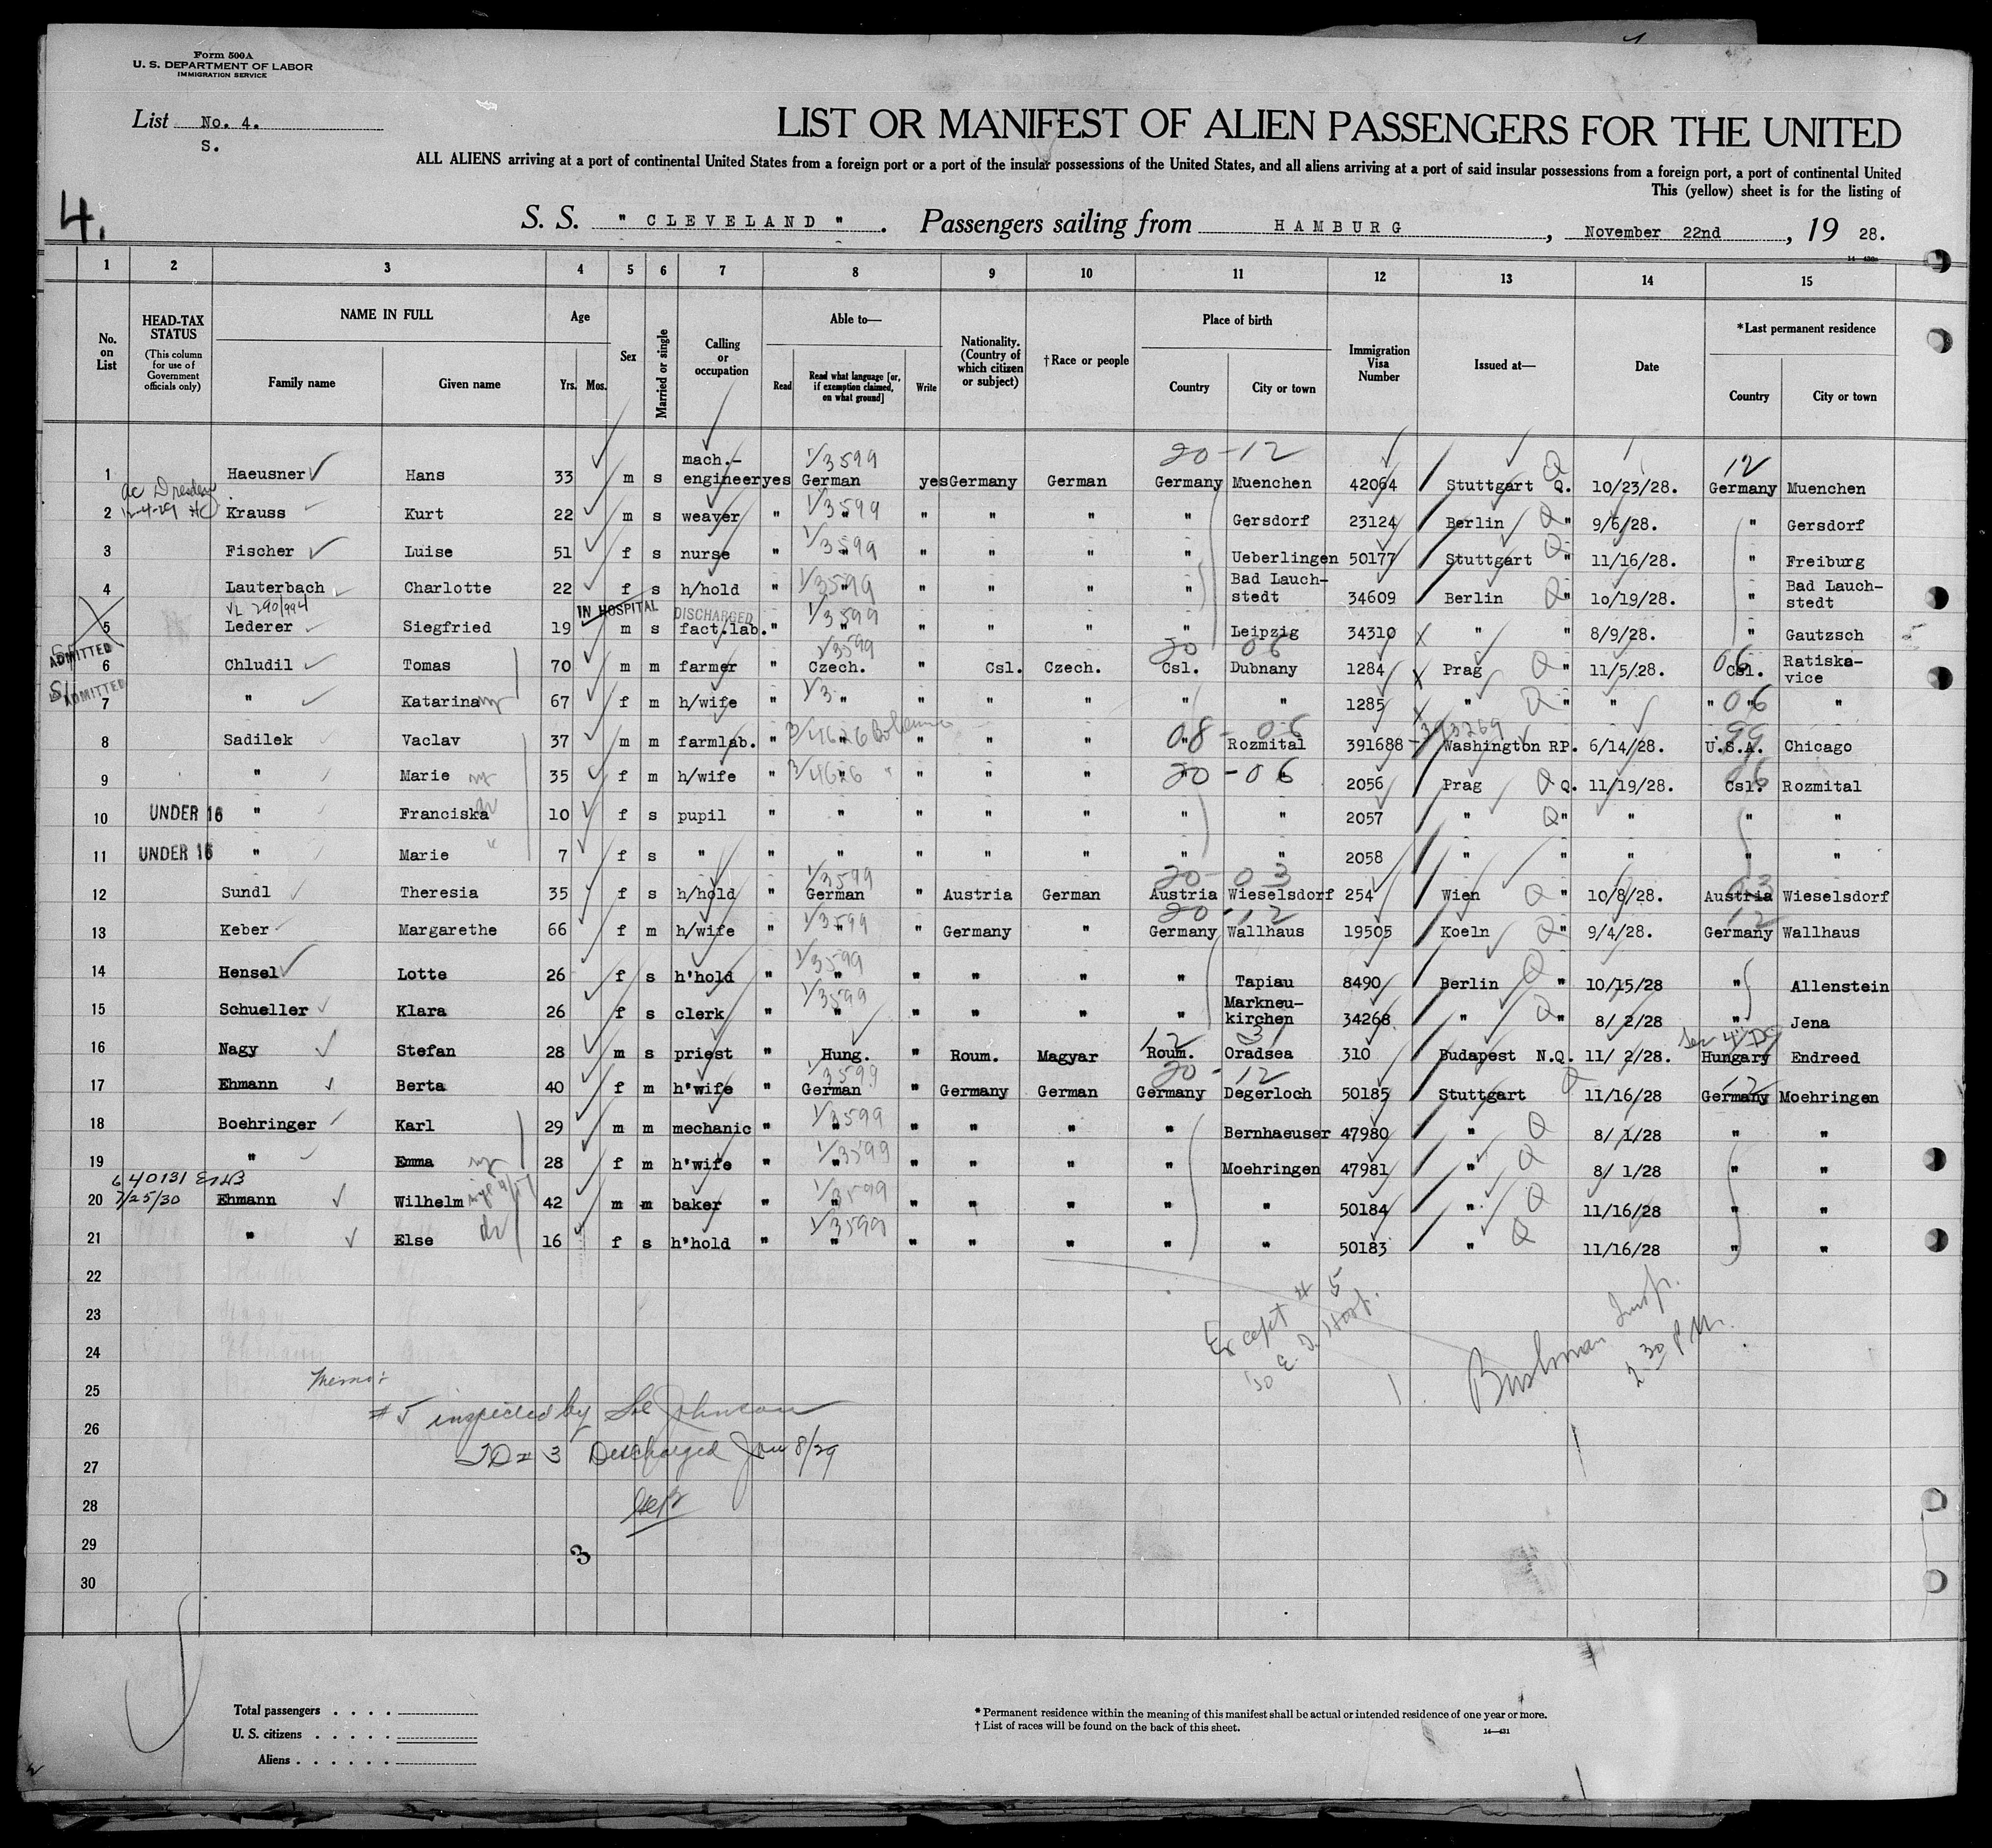 Form 500A
U. S. DEPARTMENT OF LABOR
IMMIGRATION SERVICE
List No. 4.
S.
LIST OR MANIFEST OF ALIEN PASSENGERS FOR THE UNITED
ALL ALIENS arriving at a port of continental United States from a foreign port or a port of the insular possessions of the United States, and all aliens arriving at a port of said insular possessions from a foreign port, a port of continental United
This (yellow) sheet is for the listing of
4.
S. S. " CLEVELAND " . Passengers sailing from HAMBURG , November 22nd , 19 28.
1 2 3 4 5 6 7 8 9 10 11 12 13 14 15
No. on List
HEAD-TAX STATUS
(This column for use of Government officials only)
NAME IN FULL
Family name Given name
Age
Yrs. Mos.
Sex
Married or single
Calling or occupation
Able to—
Read
Read what language [or, if exemption claimed, on what ground]
Write
Nationality. (Country of which citizen or subject)
†Race or people
Place of birth
Country City or town
Immigration Visa Number
Issued at—
Date
*Last permanent residence
Country City or town
1 Haeusner Hans 33 m s mach.-engineer yes German yes Germany German Germany Muenchen 42064 Stuttgart Q. 10/23/28. Germany Muenchen
2 Krauss Kurt 22 m s weaver " " " " " " Gersdorf 23124 Berlin " 9/6/28. " Gersdorf
3 Fischer Luise 51 f s nurse " " " " " " Ueberlingen 50177 Stuttgart " 11/16/28. " Freiburg
4 Lauterbach Charlotte 22 f s h/hold " " " " " " Bad Lauch-stedt 34609 Berlin " 10/19/28. " Bad Lauch-stedt
IN HOSPITAL DISCHARGED
5 Lederer Siegfried 19 m s fact.lab. " " " " " " Leipzig 34310 " " 8/9/28. " Gautzsch
ADMITTED
6 Chludil Tomas 70 m m farmer " Czech. " Csl. Czech. Csl. Dubnany 1284 Prag " 11/5/28. Csl. Ratiska-vice
ADMITTED
7 " Katarina 67 f m h/wife " " " " " " " 1285 " " " " "
8 Sadilek Vaclav 37 m m farmlab. " " " " " " Rozmital 391688 Washington RP. 6/14/28. U.S.A. Chicago
9 " Marie 35 f m h/wife " " " " " " " 2056 Prag Q. 11/19/28. Csl. Rozmital
10 UNDER 16 " Franciska 10 f s pupil " " " " " " " 2057 " " " " "
11 UNDER 16 " Marie 7 f s " " " " " " " " 2058 " " " " "
12 Sundl Theresia 35 f s h/hold " German " Austria German Austria Wieselsdorf 254 Wien " 10/8/28. Austria Wieselsdorf
13 Keber Margarethe 66 f m h/wife " " " Germany " Germany Wallhaus 19505 Koeln " 9/4/28. Germany Wallhaus
14 Hensel Lotte 26 f s h'hold " " " " " " Tapiau 8490 Berlin " 10/15/28 " Allenstein
15 Schueller Klara 26 f s clerk " " " " " " Markneu-kirchen 34268 " " 8/ 2/28 " Jena
16 Nagy Stefan 28 m s priest " Hung. " Roum. Magyar Roum. Oradsea 310 Budapest N.Q. 11/ 2/28. Hungary Endreed
17 Ehmann Berta 40 f m h'wife " German " Germany German Germany Degerloch 50185 Stuttgart 11/16/28 Germany Moehringen
18 Boehringer Karl 29 m m mechanic " " " " " " Bernhaeuser 47980 " 8/ 1/28 " "
19 " Emma 28 f m h'wife " " " " " " Moehringen 47981 " 8/ 1/28 " "
7/25/30
20 Ehmann Wilhelm 42 m m baker " " " " " " " 50184 " 11/16/28 " "
21 " Else 16 f s h'hold " " " " " " " 50183 " 11/16/28 " "
22
23
24
25
26
27
28
29
30
Except # 5
Bushman Insp.
2 30 P.M.
Memo:
# 5 inspected by Johnson
Discharged Jan 8/29
3
Total passengers
U. S. citizens
Aliens
* Permanent residence within the meaning of this manifest shall be actual or intended residence of one year or more.
† List of races will be found on the back of this sheet.
14—431